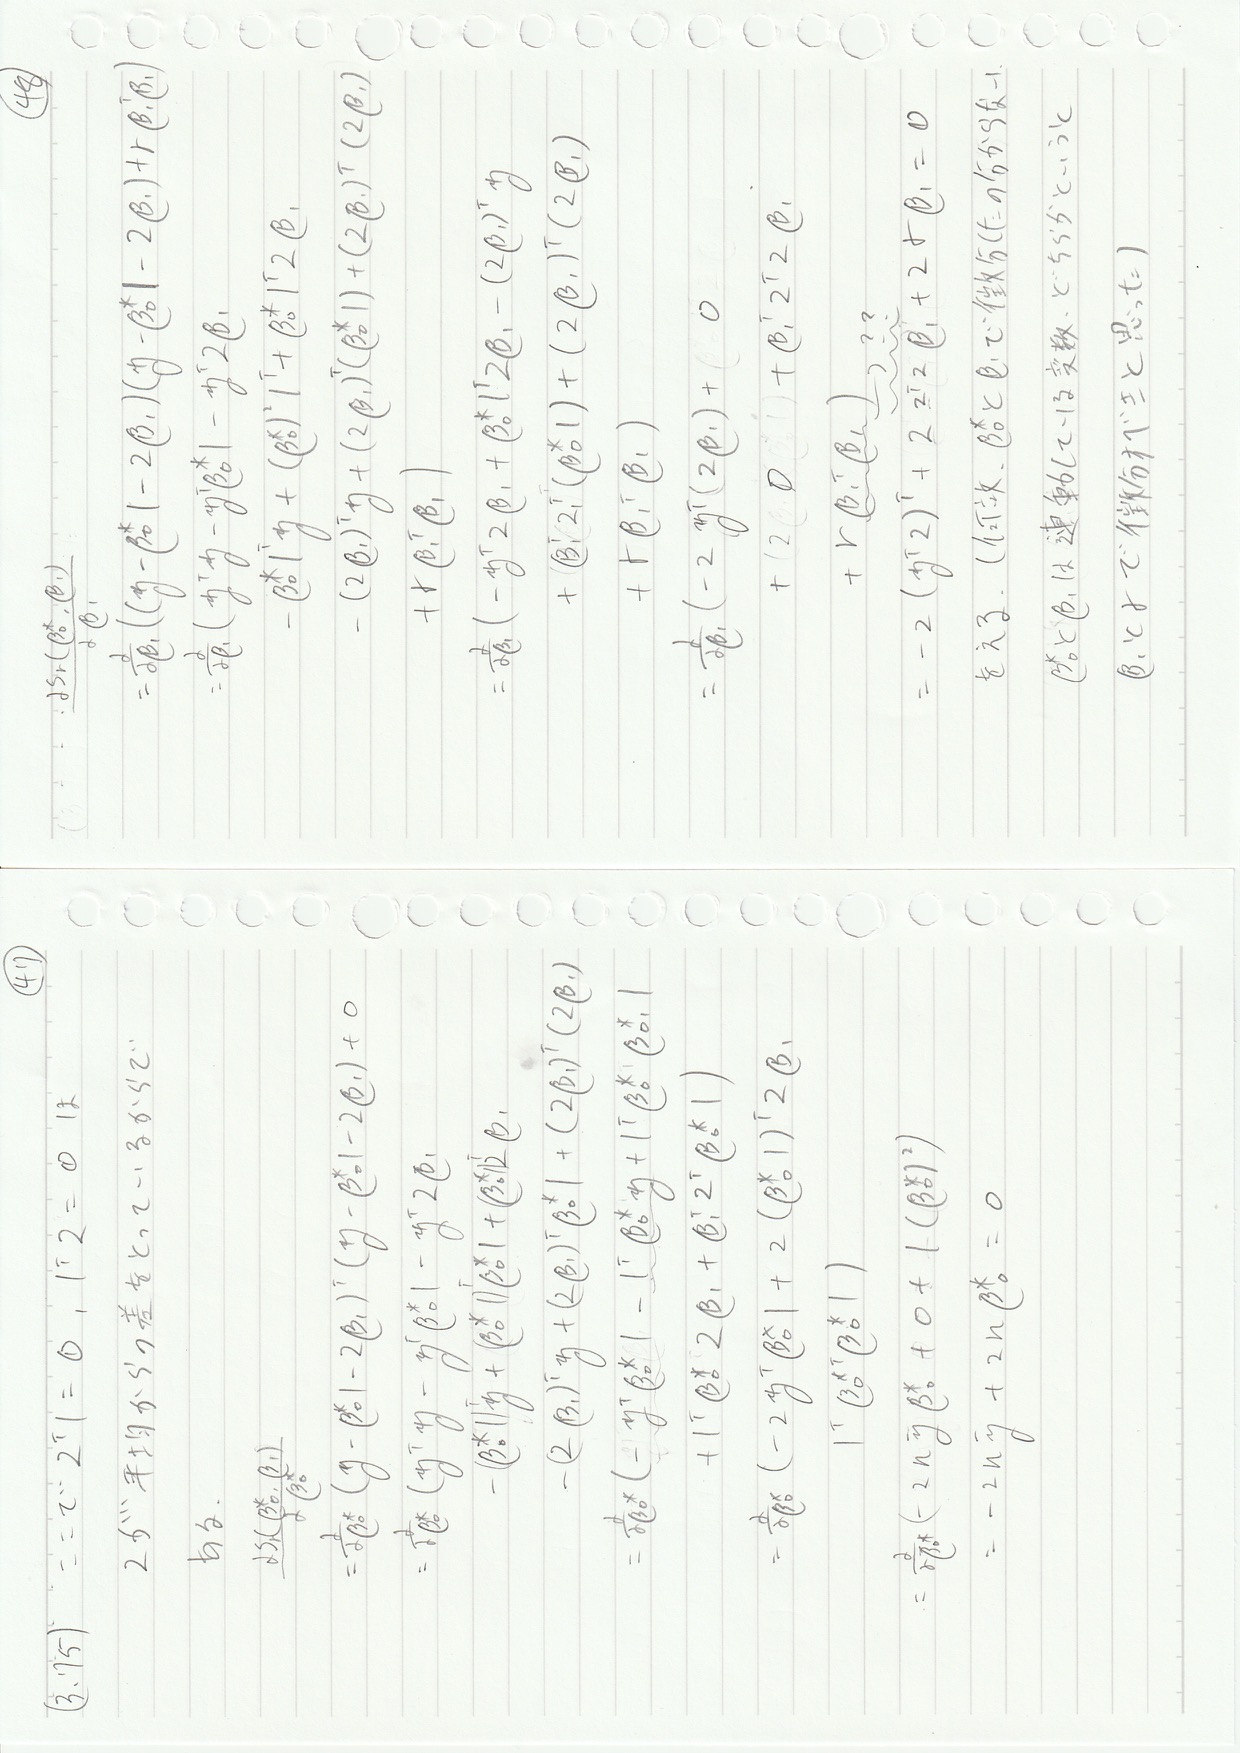 (47)
(3.75) ここで 2ᵀ1 = 0, 1ᵀ2 = 0 は
2が平均からの差をとっているからで
ある.
∂Sr(β₀*, β₁)/∂β₀*
= ∂/∂β₀* (y - β₀*1 - 2β₁)ᵀ(y - β₀*1 - 2β₁) + 0
= ∂/∂β₀* (yᵀy - yᵀβ₀*1 - yᵀ2β₁
- (β₀*1)ᵀy + (β₀*1)ᵀβ₀*1 + (β₀*1)ᵀ2β₁
- (2β₁)ᵀy + (2β₁)ᵀβ₀*1 + (2β₁)ᵀ(2β₁)
= ∂/∂β₀* (-yᵀβ₀*1 - 1ᵀβ₀*y + 1ᵀβ₀*ᵀβ₀*1
+ 1ᵀβ₀*2β₁ + β₁ᵀ2ᵀβ₀*1)
= ∂/∂β₀* (-2yᵀβ₀*1 + 2(β₀*1)ᵀ2β₁
1ᵀβ₀*ᵀβ₀*1)
= ∂/∂β₀* (-2nȳβ₀* + 0 + 1(β₀*1)²)
= -2nȳ + 2nβ₀* = 0
(48)
∂Sr(β₀*, β₁)/∂β₁
= ∂/∂β₁ ((y - β₀*1 - 2β₁)(y - β₀*1 - 2β₁) + rβ₁ᵀβ₁)
= ∂/∂β₁ (yᵀy - yᵀβ₀*1 - yᵀ2β₁
- β₀*1ᵀy + (β₀*)²1ᵀ1 + β₀*1ᵀ2β₁
- (2β₁)ᵀy + (2β₁)ᵀ(β₀*1) + (2β₁)ᵀ(2β₁)
+ rβ₁ᵀβ₁)
= ∂/∂β₁ (-yᵀ2β₁ + β₀*1ᵀ2β₁ - (2β₁)ᵀy
+ (β₁ᵀ2ᵀ(β₀*1) + (2β₁)ᵀ(2β₁)
+ rβ₁ᵀβ₁)
= ∂/∂β₁ (-2yᵀ(2β₁) + 0
+ 0 + β₁ᵀ2ᵀ2β₁
+ rβ₁ᵀβ₁) ??
= -2(yᵀ2)ᵀ + 2 2ᵀ2β₁ + 2rβ₁ = 0
をえる. (何故、β₀*とβ₁で微分したのか分からない.
β₀*とβ₁は連動している変数. どちらかというと
β₁とrで微分すべきと思った)